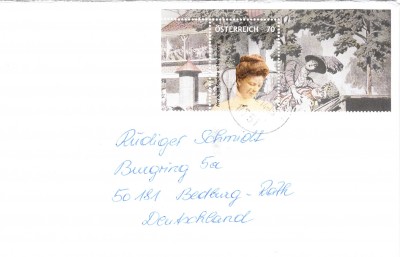 ÖSTERREICH 70
Rüdiger Schmidt
Burgring 5a
50181 Bedburg-Rath
Deutschland